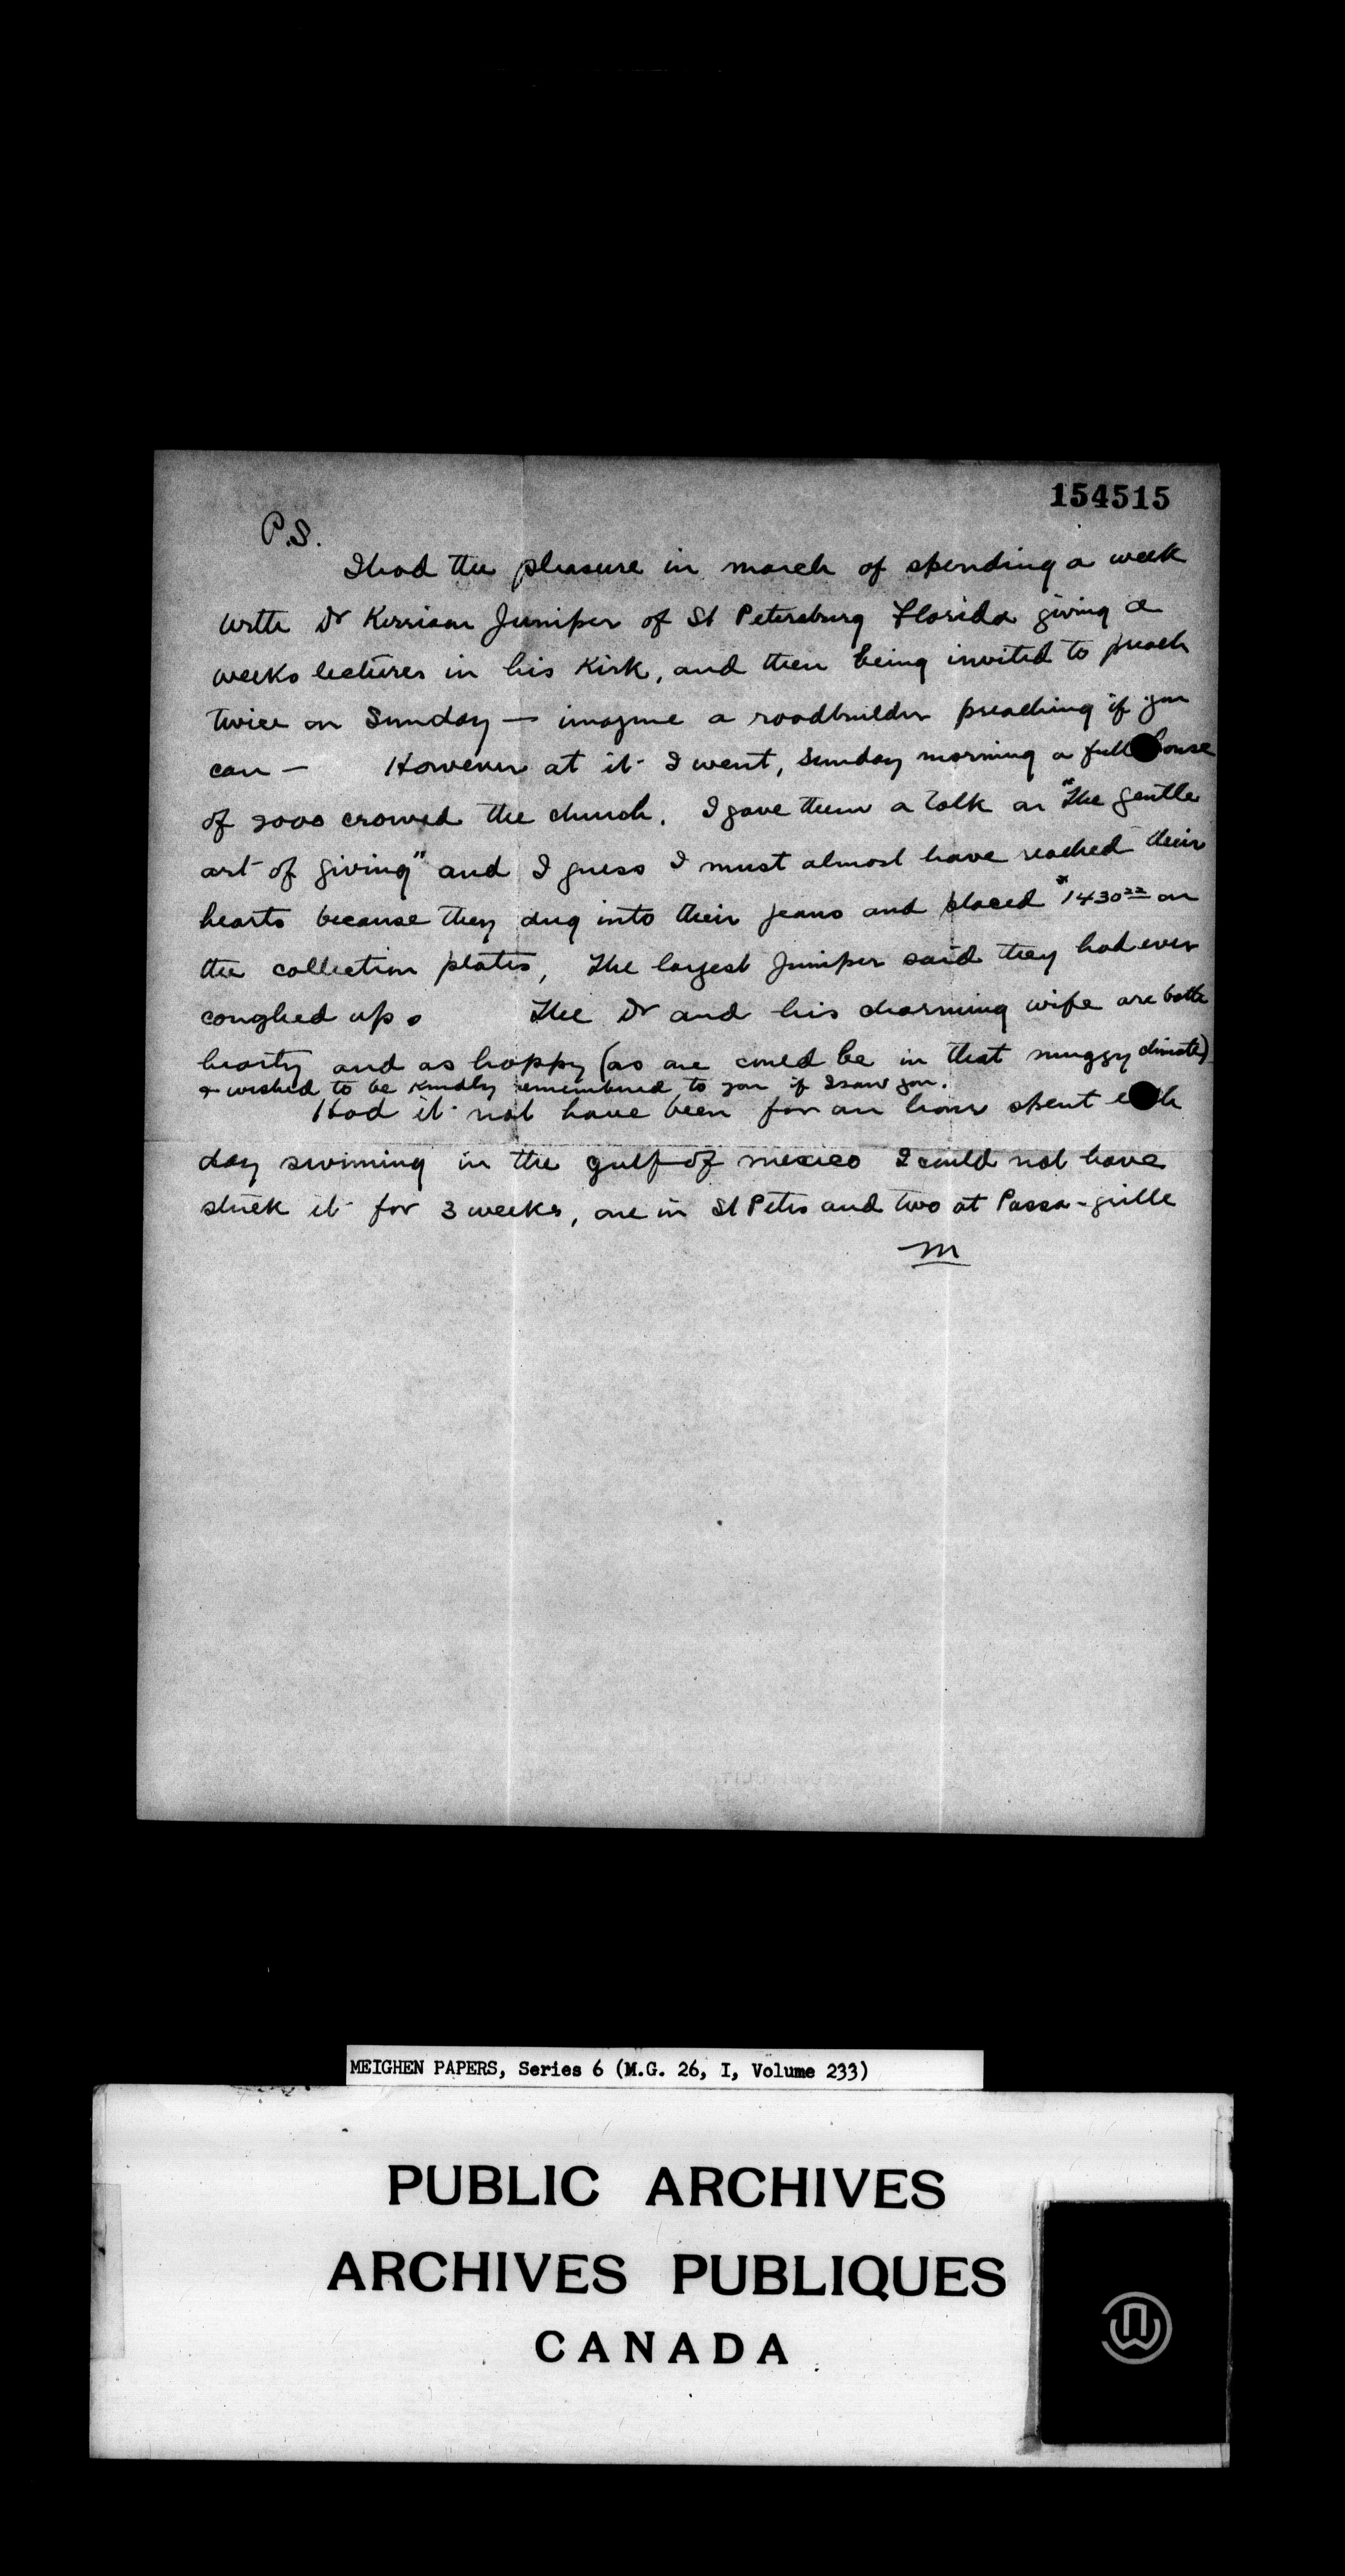 154515
P.S.
I had the pleasure in march of spending a week
with Dr Kerrison Juniper of St Petersburg Florida giving a
weeks lectures in his Kirk, and then being invited to preach
twice on Sunday — imagine a roadbuilder preaching if you
can — However at it I went, Sunday morning a full house
of 2000 crowed the church. I gave them a talk on "The gentle
art of giving" and I guess I must almost have reached their
hearts because they dug into their jeans and placed $1430 22 on
the collection plates, The largest Juniper said they had ever
coughed up. The Dr and his charming wife are both
hearty and as happy (as one could be in that muggy climate)
& wished to be kindly remembered to you if I saw you.
Had it not have been for an hour spent each
day swiming in the gulf of mexico I could not have
stuck it for 3 weeks, one in St Petes and two at Passa-grille
M
MEIGHEN PAPERS, Series 6 (M.G. 26, I, Volume 233)
PUBLIC ARCHIVES
ARCHIVES PUBLIQUES
CANADA